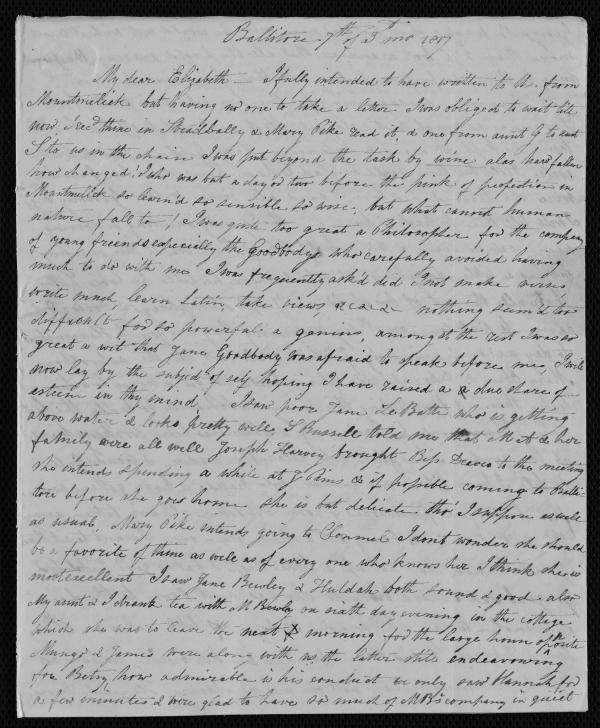 Ballitore 7th of 3d mo 1807
My dear Elizabeth — I fully intended to have written to thee from
Mountmelick but having no one to take a letter I was obliged to wait till
now I rec'd thine in Stradbally & Mary Pike read it, & one from aunt G to aunt
S to us in the chaise I was put beyond the task by wine alas how fallen
how changed! I who was but a day or two before the pink of perfection in
Mountmelick so learn'd so sensible so wise, but what cannot human
nature fall to! I was quite too great a Philosopher for the company
of young friends especially the Goodbodys who carefully avoided having
much to do with me I was frequently ask'd did I not make verses
write much, learn Latin, take views, &c &c & nothing seem'd too
difficult for so powerful a genius, amongst the rest I was so
great a wit that Jane Goodbody was afraid to speak before me, I will
now lay by the subject of self hoping I have raised a due share of
esteem in thy mind. I saw poor Jane who is getting
above water & looks pretty well S Russell told me that & her
family were all well Joseph Harvey brought to the meeting
she intends spending a while at J & if possible coming to Balli-
tore before she goes home she is but delicate tho' I suppose as well
as usual. Mary Pike intends going to Clonmel I dont wonder she should
be a favorite of thine as well as of every one who knows her I think she is
most excellent I saw Jane Bewley & Huldah both sound & good also
My aunt & I drank tea with M Bewley on sixth day evening in the cottage
which she was to leave the next morning for the large house opposite
Mungo & James were along with us, the latter still endeavouring
for Betsy how admirable is his conduct we only saw Hannah for
a few minutes & were glad to have so much of MB's company in quiet